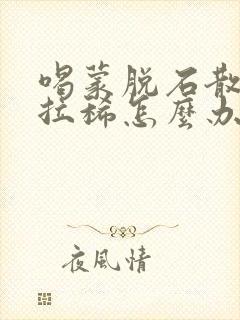 喝蒙脱石散
拉稀怎麼办
夜風情